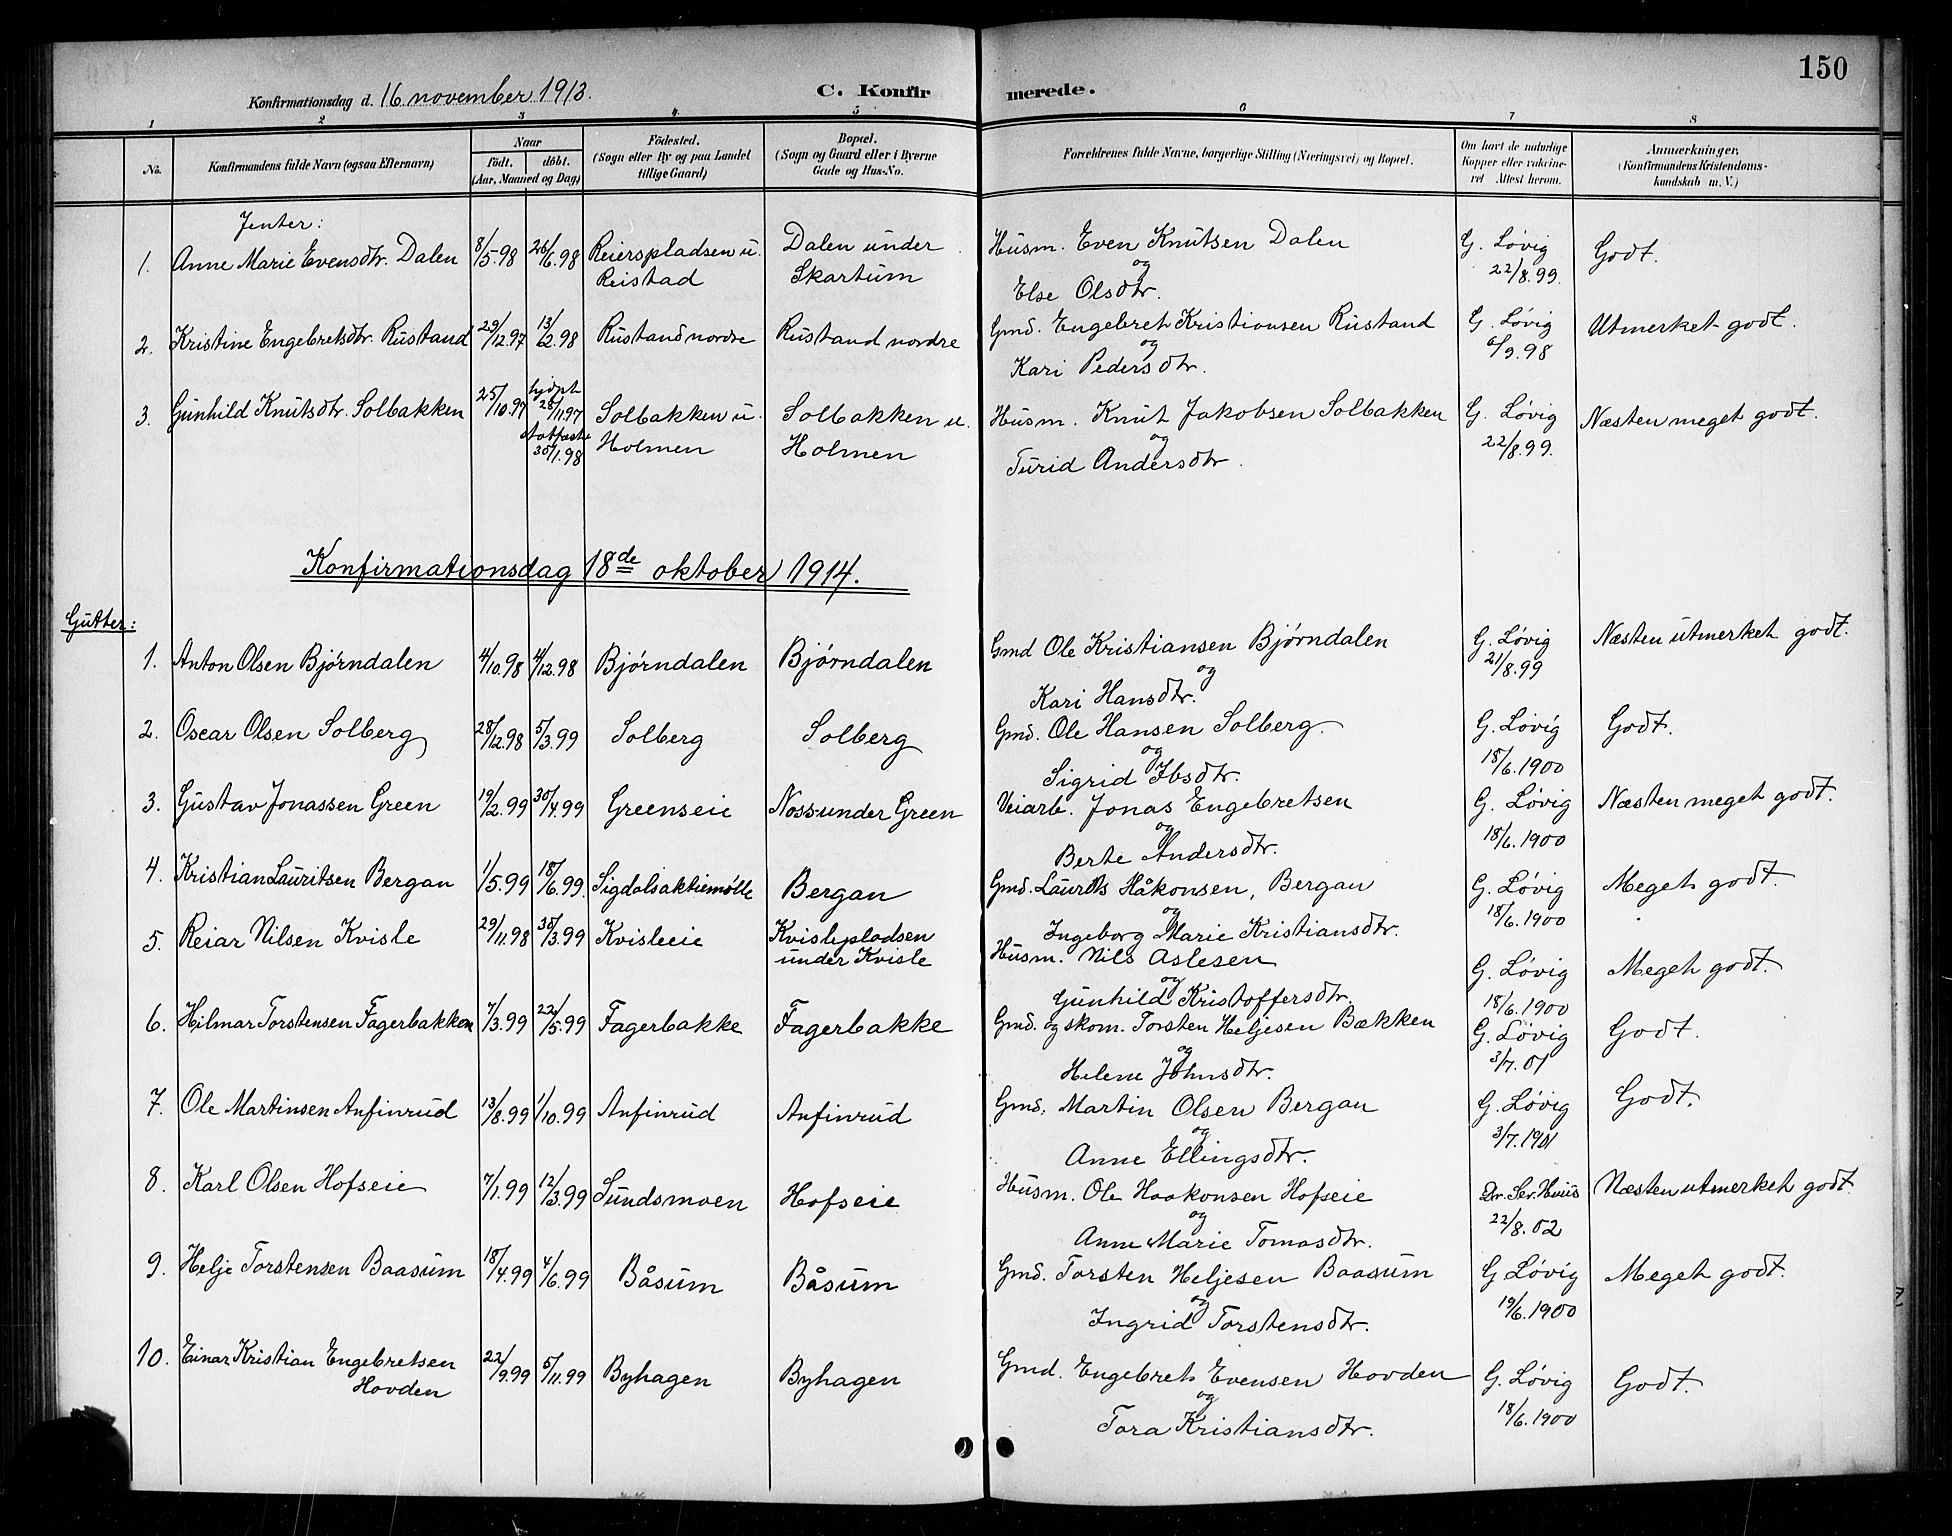 150
Konfirmationsdag d. 16 november 1913.
C. Konfir merede.
1 2 3 4 5 6 7 8
No.
Konfirmandens fulde Navn (ogsaa Efternavn)
Naar
født. døbt.
(Aar, Maaned og Dag)
Födested.
(Sogn eller By og paa Landet
tillige Gaard)
Bopæl.
(Sogn og Gaard eller i Byerne
Gade og Hus-No.
Forældrenes fulde Navne, borgerlige Stilling (Næringsvei) og Bopæl.
Om havt de naturlige
Kopper eller vakcine-
ret Attest herom.
Anmærkninger,
(Konfirmandens Kristendoms-
kundskab m. V.)
Jenter:
1. Anne Marie Evensdtr. Dalen 8/5.98 26/6.98 Reierspladsen u. Dalen under Husm. Even Knutsen Dalen G. Løvig Godt.
Reistad Skartum og 22/8.99.
Else Olsdtr.
2. Kristine Engebretsdtr. Rustand 29/12.97 13/2.98 Rustand nordre Rustand nordre Gmd. Engebret Kristiansen Rustand G. Løvig Utmerket godt.
og /9.98
Kari Pedersdtr.
3. Gunhild Knutsdtr. Solbakken 25/10.97 hjdpt 28/11.97 Solbakken u. Solbakken u. Husm. Knut Jakobsen Solbakken G. Løvig Næsten meget godt.
stadfæste 30/1.98 Holmen Holmen og 22/8.99.
Turid Andersdtr.
Konfirmationsdag 18de oktober 1914.
Gutter:
1. Anton Olsen Bjørndalen 4/10.98 4/12.98 Bjørndalen Bjørndalen Gmd Ole Kristiansen Bjørndalen G. Løvig Næsten utmerket godt.
og 21/8.99
Kari Hansdtr.
2. Oscar Olsen Solberg 28/12.98 5/3.99 Solberg Solberg Gmd. Ole Hansen Solberg. G. Løvig Godt.
og 18/6.1900
Sigrid Ibsdtr.
3. Gustav Jonassen Green 19/2.99 30/4.99 Greenseie Noss under Green Veiarb. Jonas Engebretsen G. Løvig Næsten meget godt.
og 18/6.1900
Berte Andersdtr.
4. Kristian Lauritsen Bergan 1/5.99 18/6.99. Sigdalsaktiemølle Bergan Gmd. Laurits Håkonsen, Bergan G. Løvig Meget godt.
og 18/6.1900
Ingeborg Marie Kristiansdtr.
5. Reiar Nilsen Kvisle 29/11.98 30/3.99 Kvisleeie Kvislepladsen Husm. Nils Aslesen G. Løvig Meget godt.
under Kvisle og 18/6.1900
Gunhild Kristoffersdtr.
6. Hilmar Torstensen Fagerbakken 7/3.99 22/5.99 Fagerbakke Fagerbakke Gmd. og skom. Torsten Heljesen Bækken G. Løvig Godt.
og 3/7.01
Helene Johnsdtr.
7. Ole Martinsen Anfinrud 13/8.99 1/10.99 Anfinrud Anfinrud Gmd. Martin Olsen Bergan G. Løvig Godt.
og 3/7.1901
Anne Ellingsdtr.
8. Karl Olsen Hofseie 7/1.99 12/3.99 Sundsmoen Hofseie Husm. Ole Haakonsen Hofseie Dr. Næsten utmerket godt.
og 22/8.02
Anne Marie Tomasdtr.
9. Helje Torstensen Baasum 18/4.99 4/6.99 Båsum Båsum Gmd. Torsten Heljesen Baasum G Løvig Meget godt.
og 19/6.1900
Ingrid Torstensdtr.
10. Einar Kristian Engebretsen 22/9.99 5/11.99 Byhagen Byhagen Gmd. Engebret Evensen Hovden G. Løvig Godt.
Hovden og 18/6.1900
Tora Kristiansdtr.